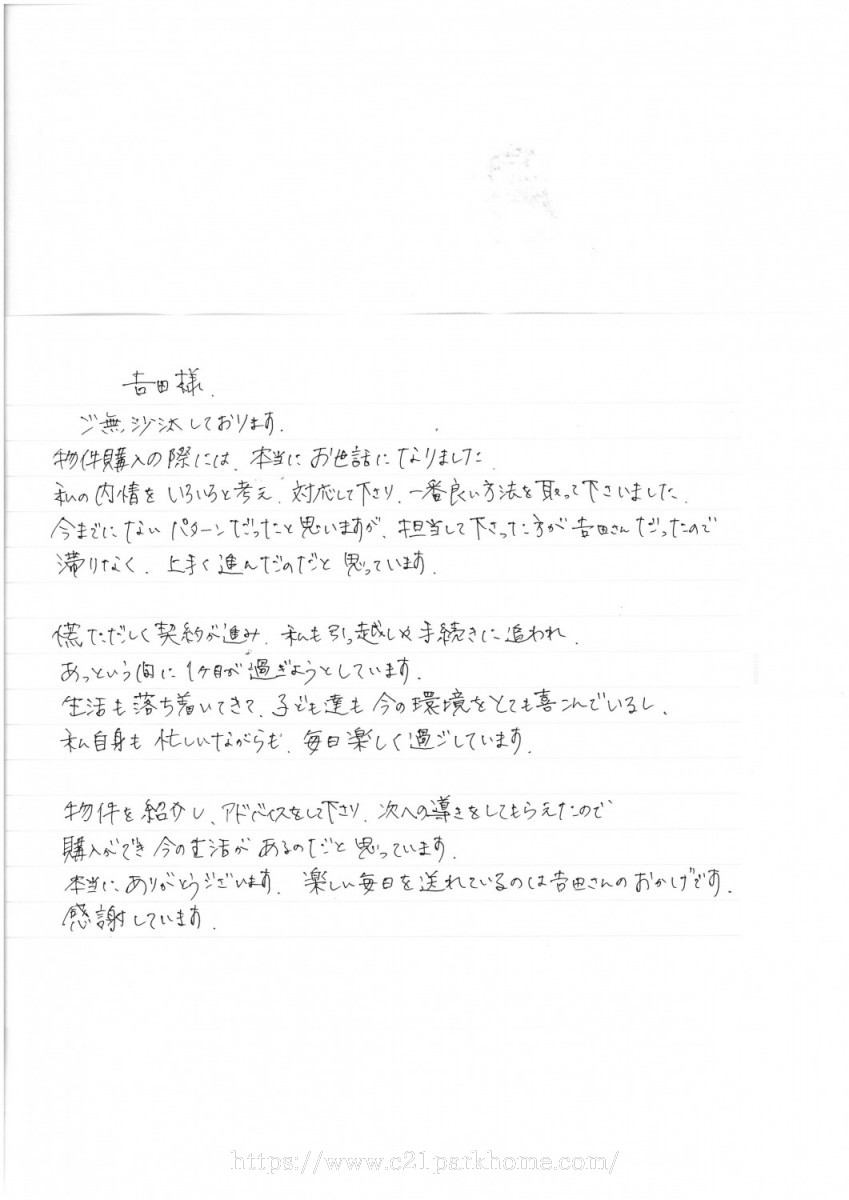 吉田様.
ご無沙汰しております.
物件購入の際には、本当にお世話になりました.
私の内情をいろいろと考え、対応して下さり、一番良い方法を取って下さいました.
今までにないパターンだったと思いますが、担当して下さった方が吉田さんだったので
滞りなく、上手く進んだのだと思っています.
慌ただしく契約が進み、私も引っ越しや手続きに追われ、
あっという間に1ケ月が過ぎようとしています.
生活も落ち着いてきて、子ども達も今の環境をとても喜こんでいるし、
私自身も忙しいながらも、毎日楽しく過ごしています.
物件を紹介し、アドバイスをして下さり、次への導きをしてもらえたので
購入ができ今の生活があるのだと思っています.
本当にありがとうございます. 楽しい毎日を送れているのは吉田さんのおかげです.
感謝しています.
https://www.c21parkhome.com/